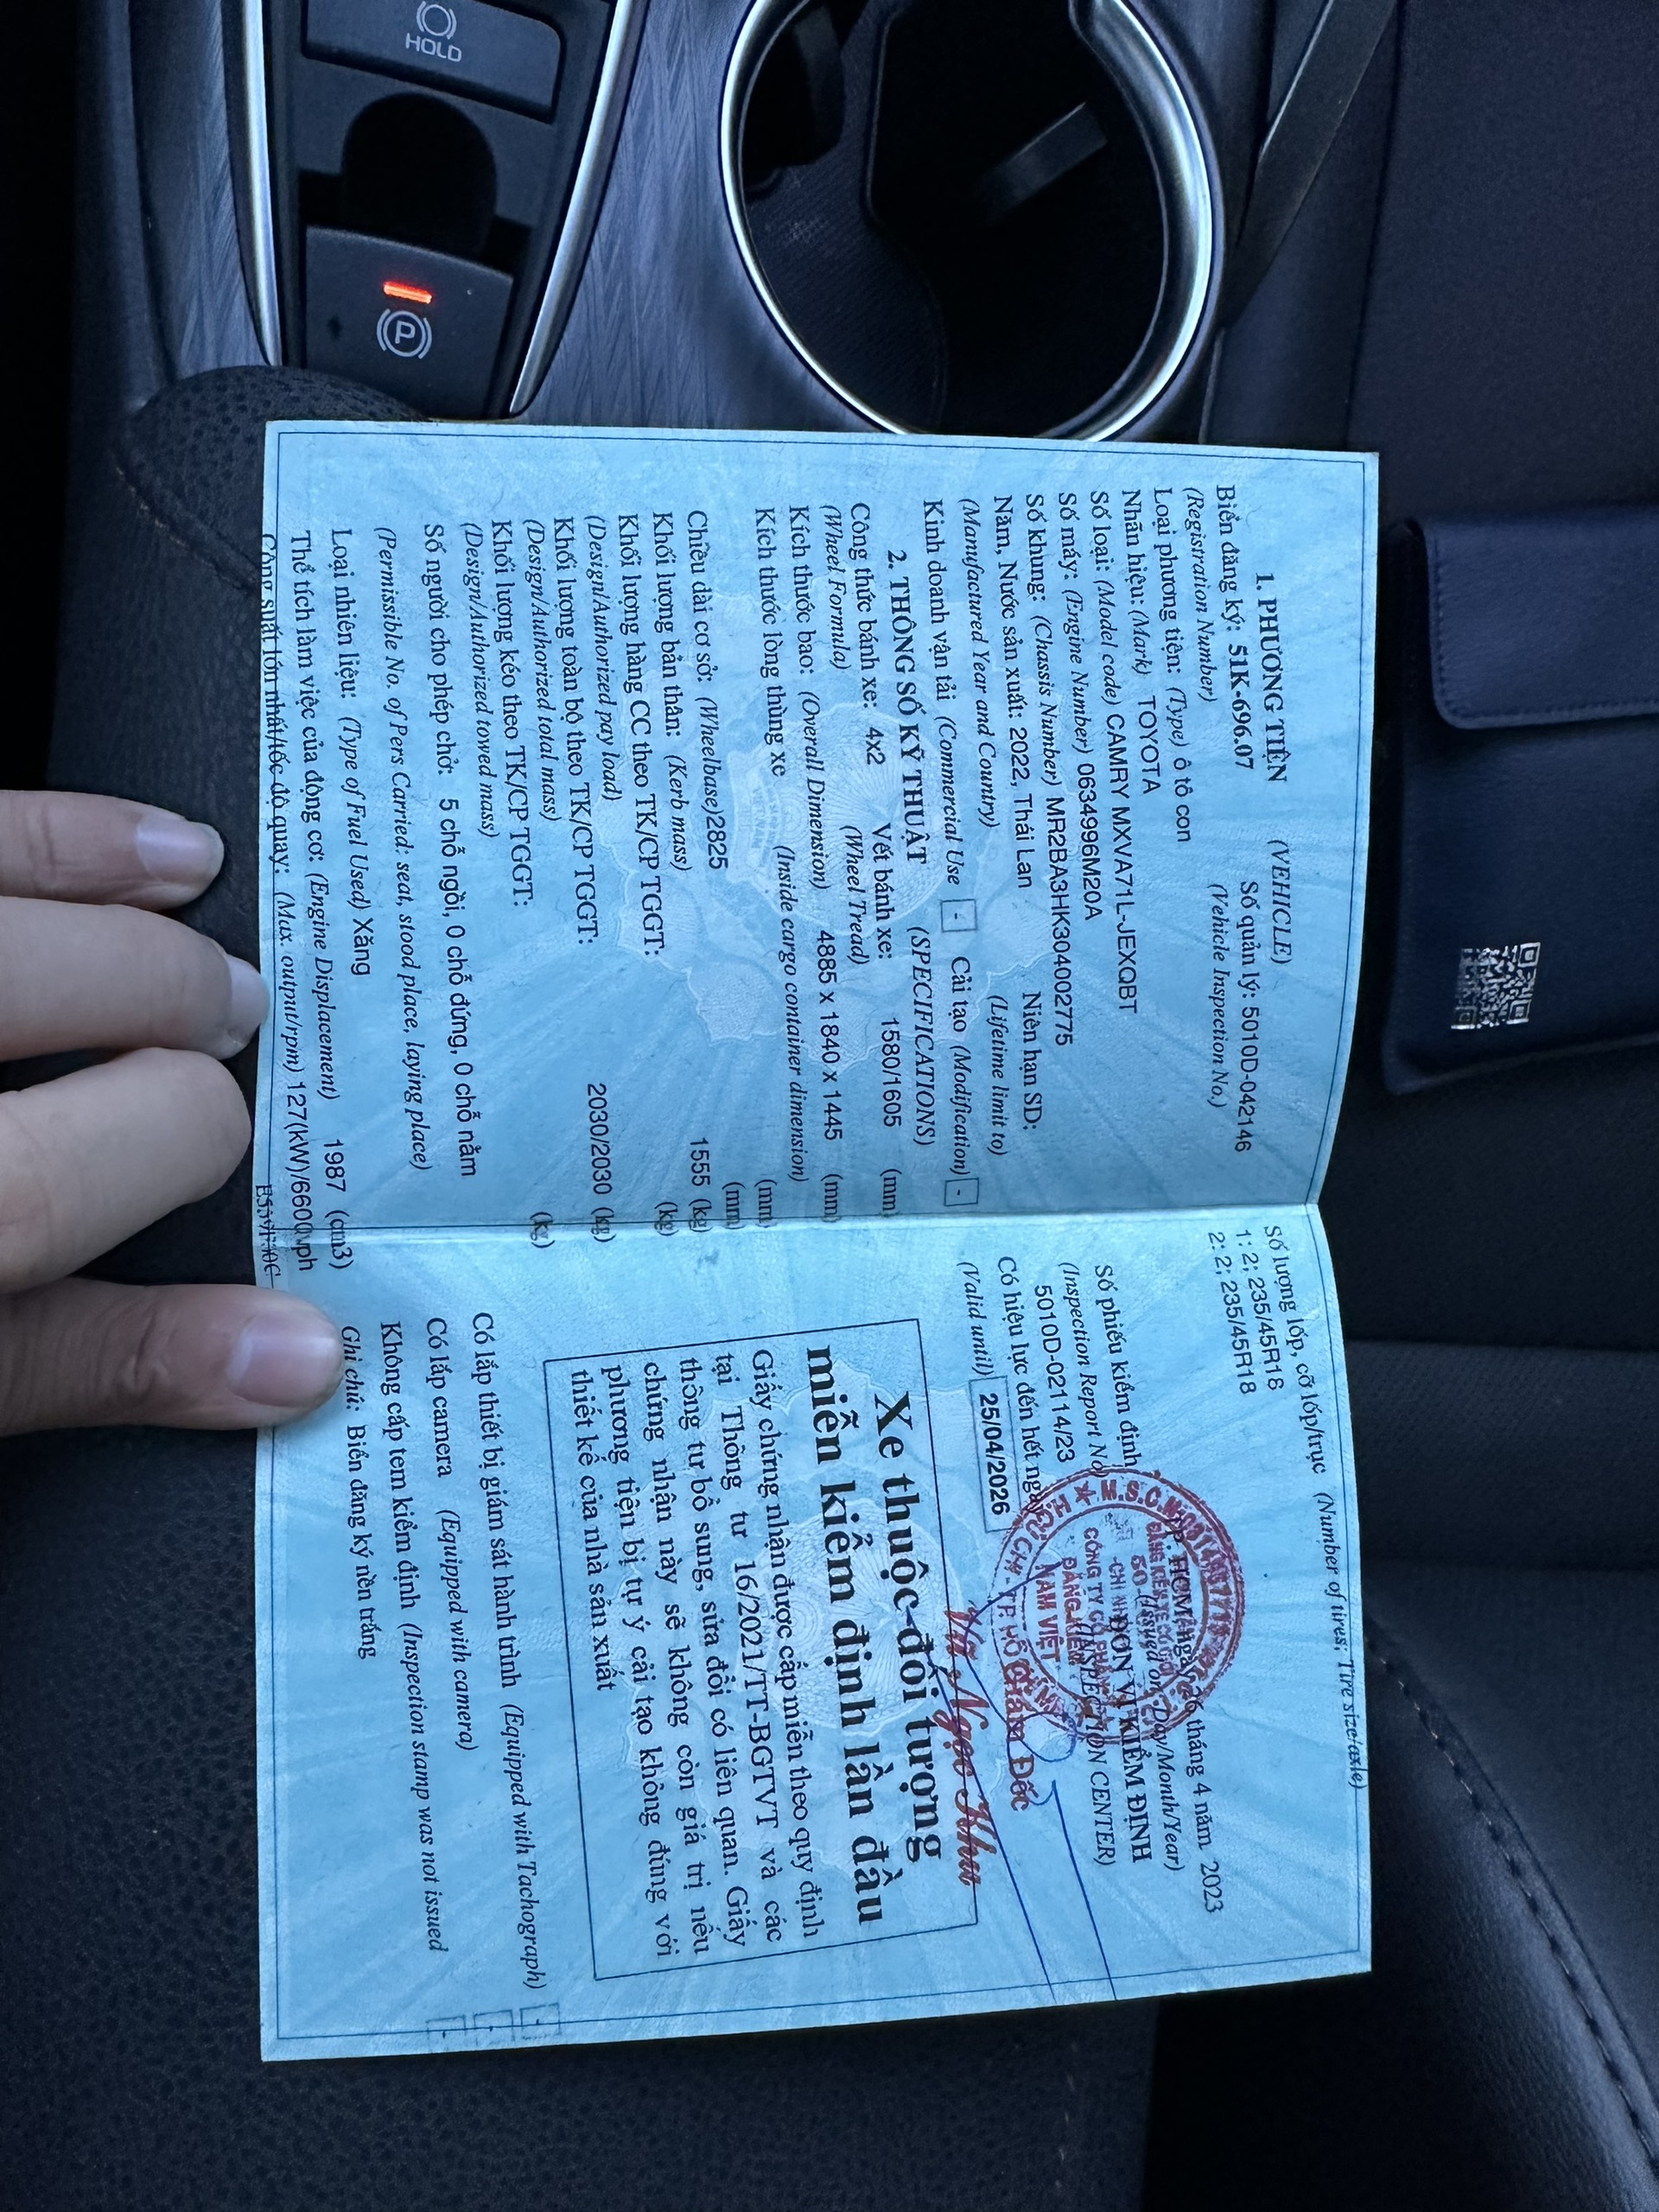 HOLD
P
1. PHƯƠNG TIỆN (VEHICLE)
Biển đăng ký: 51K-696.07 Số quản lý: 5010D-042146
(Registration Number) (Vehicle Inspection No.)
Loại phương tiện: (Type) ô tô con
Nhãn hiệu: (Mark) TOYOTA
Số loại: (Model code) CAMRY MXVA71L-JEXQBT
Số máy: (Engine Number) 0634996M20A
Số khung: (Chassis Number) MR2BA3HK304002775
Năm, Nước sản xuất: 2022, Thái Lan Niên hạn SD:
(Manufactured Year and Country) (Lifetime limit to)
Kinh doanh vận tải (Commercial Use - Cải tạo (Modification) -
2. THÔNG SỐ KỸ THUẬT (SPECIFICATIONS)
Công thức bánh xe: 4x2 Vết bánh xe: 1580/1605 (mm
(Wheel Formula) (Wheel Tread)
Kích thước bao: (Overall Dimension) 4885 x 1840 x 1445 (mm)
Kích thước lòng thùng xe (Inside cargo container dimension)
(mm)
Chiều dài cơ sở: (Wheelbase)2825 (mm)
Khối lượng bản thân: (Kerb mass) 1555 (kg)
Khối lượng hàng CC theo TK/CP TGGT: (kg)
(Design/Authorized pay load)
Khối lượng toàn bộ theo TK/CP TGGT: 2030/2030 (kg)
(Design/Authorized total mass)
Khối lượng kéo theo TK/CP TGGT: (kg)
(Design/Authorized towed mass)
Số người cho phép chở: 5 chỗ ngồi, 0 chỗ đứng, 0 chỗ nằm
(Permissible No. of Pers Carried: seat, stood place, laying place)
Loại nhiên liệu: (Type of Fuel Used) Xăng
Thể tích làm việc của động cơ: (Engine Displacement) 1987 (cm3)
Công suất lớn nhất/tốc độ quay: (Max. output/rpm) 127(kW)/6600vph
Số lượng lốp, cỡ lốp/trục (Number of tires; Tire size/axle)
1: 2; 235/45R18
2: 2; 235/45R18
HCM, ngày 26 tháng 4 năm 2023
(Issued on: Day/Month/Year)
Số phiếu kiểm định ĐƠN VỊ KIỂM ĐỊNH
(Inspection Report No) (INSPECTION CENTER)
5010D-02114/23
Có hiệu lực đến hết ngày
(Valid until) 25/04/2026
CÔNG TY CỔ PHẦN
ĐĂNG KIỂM
NAM VIỆT
Giám Đốc
Xe thuộc đối tượng
miễn kiểm định lần đầu
Giấy chứng nhận được cấp miễn theo quy định
tại Thông tư 16/2021/TT-BGTVT và các
thông tư bổ sung, sửa đổi có liên quan. Giấy
chứng nhận này sẽ không còn giá trị nếu
phương tiện bị tự ý cải tạo không đúng với
thiết kế của nhà sản xuất
Có lắp thiết bị giám sát hành trình (Equipped with Tachograph) -
Có lắp camera (Equipped with camera) -
Không cấp tem kiểm định (Inspection stamp was not issued -
Ghi chú: Biển đăng ký nền trắng